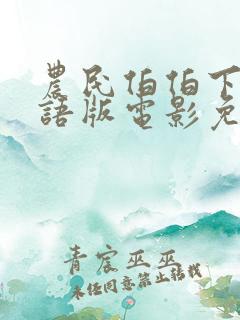 農民伯伯下
語版電影免
青宸巫巫
未经同意禁止转载